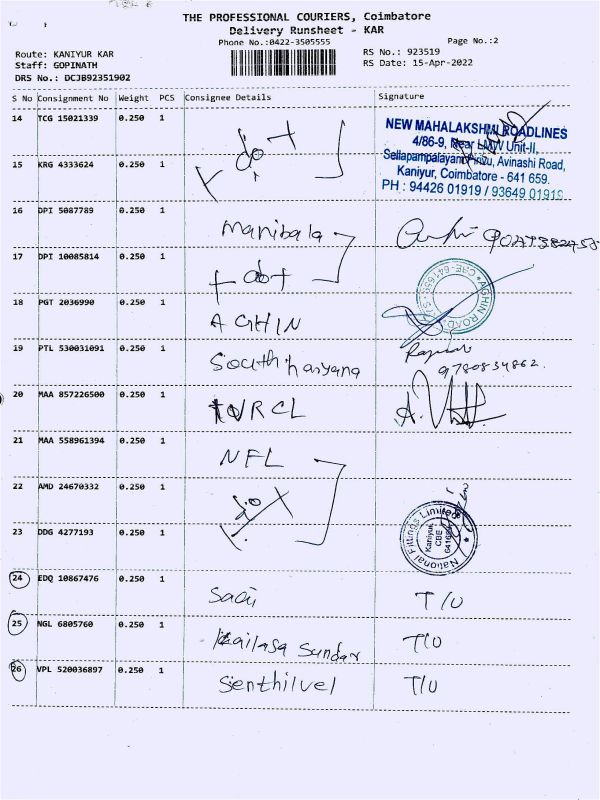 THE PROFESSIONAL COURIERS, Coimbatore
Delivery Runsheet - KAR
Phone No.:0422-3505555
Page No.:2
Route: KANIYUR KAR
Staff: GOPINATH
DRS No.: DCJB92351902
RS No.: 923519
RS Date: 15-Apr-2022
S No Consignment No Weight PCS Consignee Details Signature
14 TCG 15021339 0.250 1
NEW MAHALAKSHMI ROADLINES
4/86-9, Near LMW Unit-II,
Sellapampalayam Pirivu, Avinashi Road,
Kaniyur, Coimbatore - 641 659.
PH : 94426 01919 / 93649 01919
15 KRG 4333624 0.250 1
16 DPI 5087789 0.250 1 Manibala
17 DPI 10085814 0.250 1
18 PGT 2036990 0.250 1 AGHIN
19 PTL 530031091 0.250 1 South hariyana
9780834862
20 MAA 857226500 0.250 1 IVRCL
21 MAA 558961394 0.250 1 NFL
22 AMD 24670332 0.250 1
23 DDG 4277193 0.250 1
National Fittings Limited
Kaniyur,
CBE
24 EDQ 10867476 0.250 1 T/U
25 NGL 6805760 0.250 1 Kailasa Sundar T/U
26 VPL 520036897 0.250 1 Senthilvel T/U